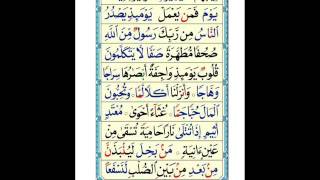 يَوْمَ فَمَنْ يَعْمَلْ يَوْمَئِذٍ يَصْدُرُ
النَّاسُ مِنْ رَبِّكَ رَسُولٌ مِنَ اللّٰهِ
صُحُفًا مُطَهَّرَةً صَفًّا لَا يَتَكَلَّمُونَ
قُلُوبٌ يَوْمَئِذٍ وَاجِفَةٌ أَبْصَارُهَا سِرَاجًا
وَهَّاجًا وَأَنْزَلْنَا أَكْلًا لَمًّا وَتُحِبُّونَ
الْمَالَ حُبًّا جَمًّا غُثَاءً أَحْوَى مُعْتَدٍ
أَثِيمٍ إِذَا تُتْلَى نَارًا حَامِيَةً تُسْقَى مِنْ
عَيْنٍ آنِيَةٍ مَنْ بَخِلَ لَيُنْبَذَنَّ
مِنْ بَعْدِ مِنْ بَيْنِ الصُّلْبِ لَنَسْفَعًا